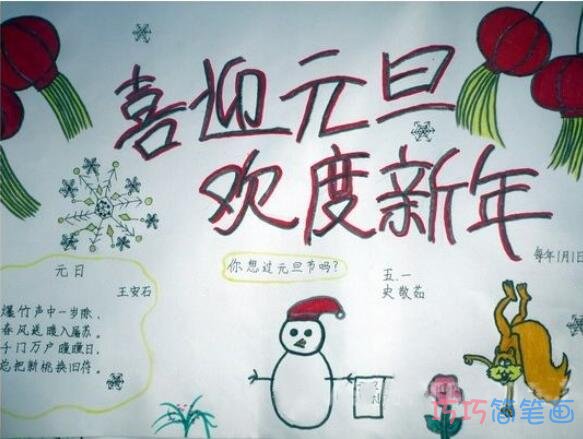 喜迎元旦
欢度新年
每年1月1日
元日
王安石
爆竹声中一岁除,
春风送暖入屠苏。
千门万户瞳瞳日,
总把新桃换旧符。
你想过元旦节吗?
五.一
史敬茹
巧巧简笔画